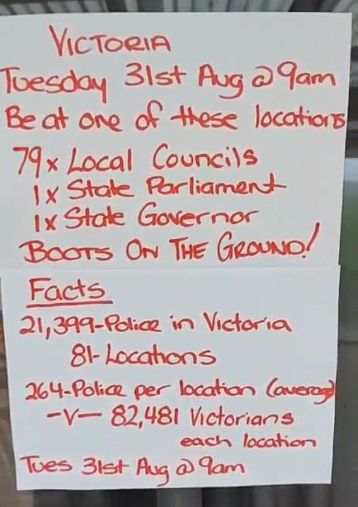 VICTORIA
Tuesday 31st Aug @ 9am
Be at one of these locations
79x Local Councils
1x State Parliament
1x State Governor
BOOTS ON THE GROUND!
Facts
21,399-Police in Victoria
81-Locations
264-Police per location (average)
-V- 82,481 Victorians
each location
Tues 31st Aug @ 9am